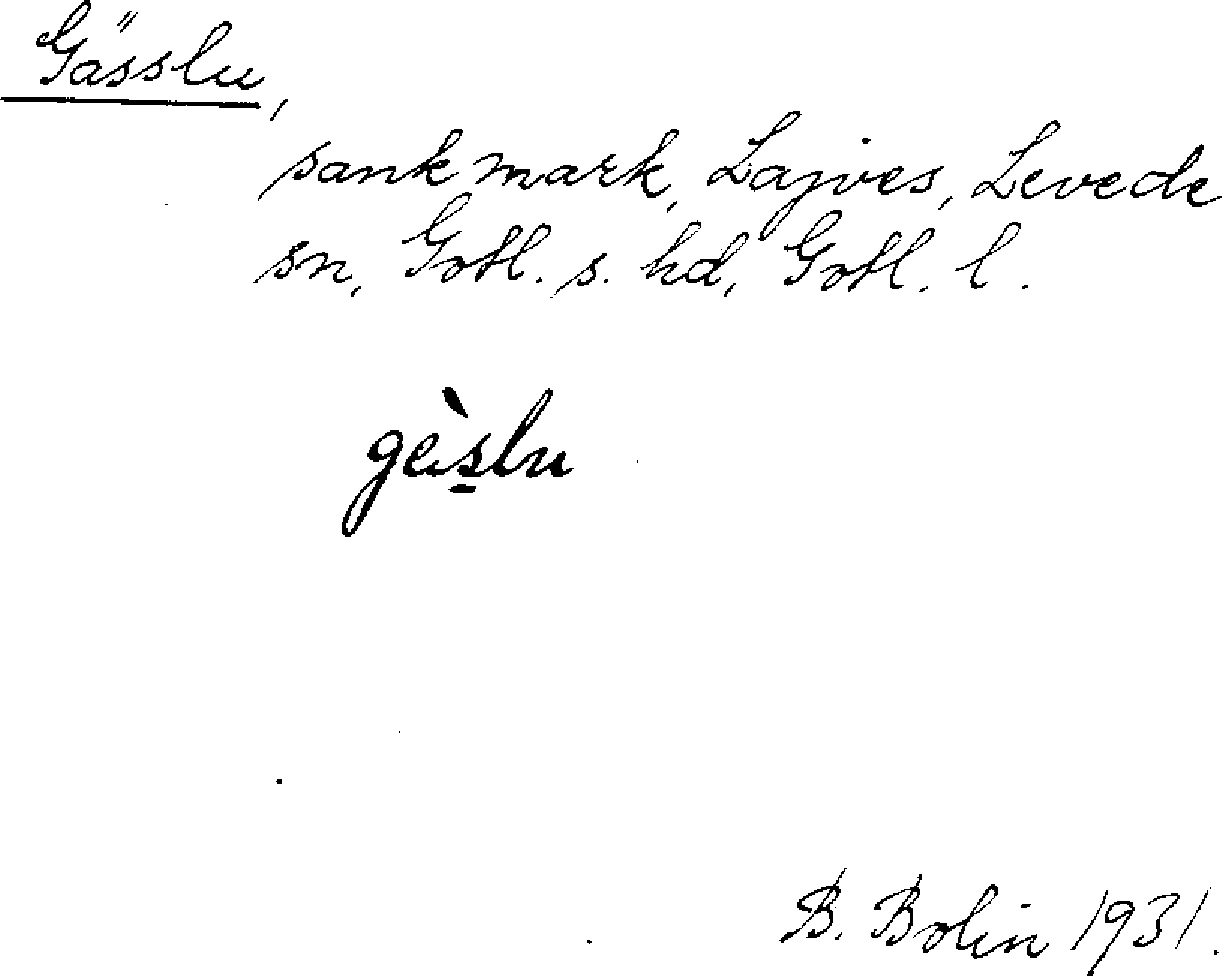 Gässlu,
sank mark, Lajves, Levede
sn, Gotl. s. hd, Gotl. l.
gèslu
B. Bolin 1931.